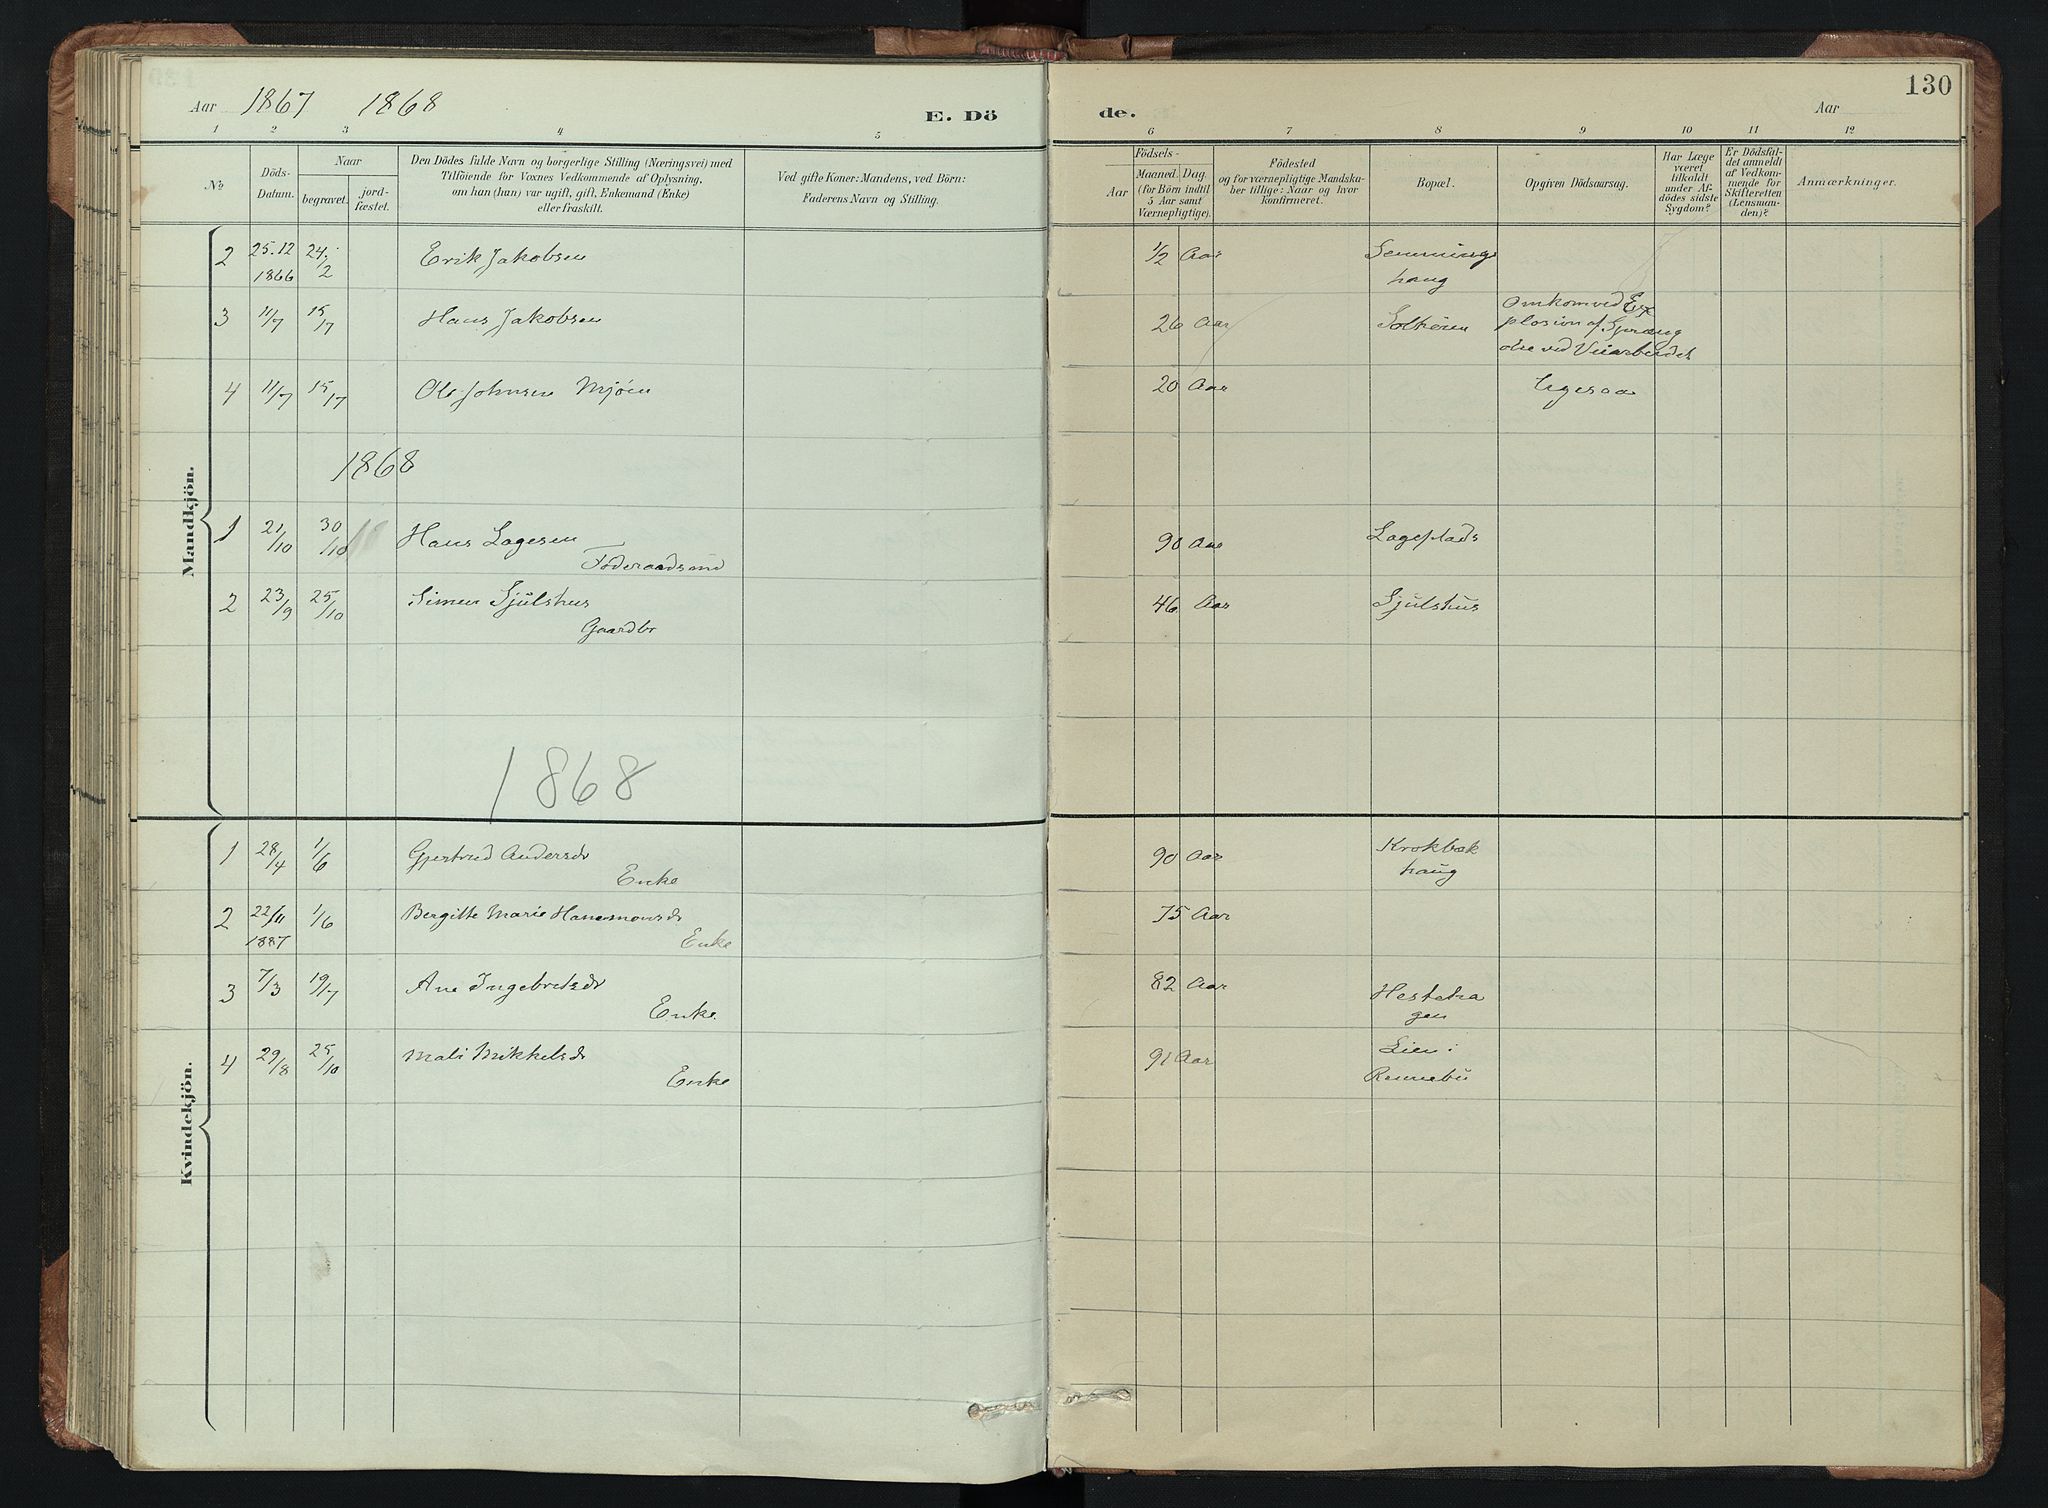 130
Aar 1867 1868 E. Dö de. Aar
1 2 3 4 5 6 7 8 9 10 11 12
№
Döds-
Datum.
Naar
begravet.
jord-
fæstet.
Den Dödes fulde Navn og borgerlige Stilling (Næringsvei) med
Tilföiende for Voxnes Vedkommende af Oplysning,
om han (hun) var ugift, gift, Enkemand (Enke)
eller fraskilt.
Ved gifte Koner: Mandens, ved Börn:
Faderens Navn og Stilling.
Födsels-
Aar
Maaned. Dag.
(for Börn indtil
5 Aar samt
Værnepligtige).
Födested
og for værnepligtige Mandska-
ber tillige: Naar og hvor
konfirmeret.
Bopæl.
Opgiven Dödsaarsag.
Har Læge
været
tilkaldt
under Af-
dödes sidste
Sygdom?
Er Dödsfal-
det anmeldt
af Vedkom-
mende for
Skifteretten
(Lensman-
den)?
Anmærkninger.
Mandkjön.
2 25.12 24. Erik Jakobsen 1/2 Aar
1866 /2 haug
3 11/7 15/7 Hans Jakobsen 26 Aar Omkom ved Ex
plosion af Spræng
olie ved Veiarbeidet
4 11/7 15/7 Ole Johnsen Mjöen 20 Aar Ligesaa
1868
1 21/10 30/10 Hans Lagesen 90 Aar Lageplads
Föderaadsmd
2 23/9 25/10 Simen Sjulshus 46 Aar Sjulshus
Gaardbr
1868
Kvindekjön.
1 28/4 1/6 Gjertrud Andersdr 90 Aar Krokbæk
Enke haug
2 22/11 1/6 Bergitte Marie 75 Aar
1887 Enke
3 7/3 19/7 Ane Ingebretsdr 82 Aar Hesteha
Enke gen
4 29/8 25/10 Mali Mikkelsdr 91 Aar Lien i
Enke Rennebu